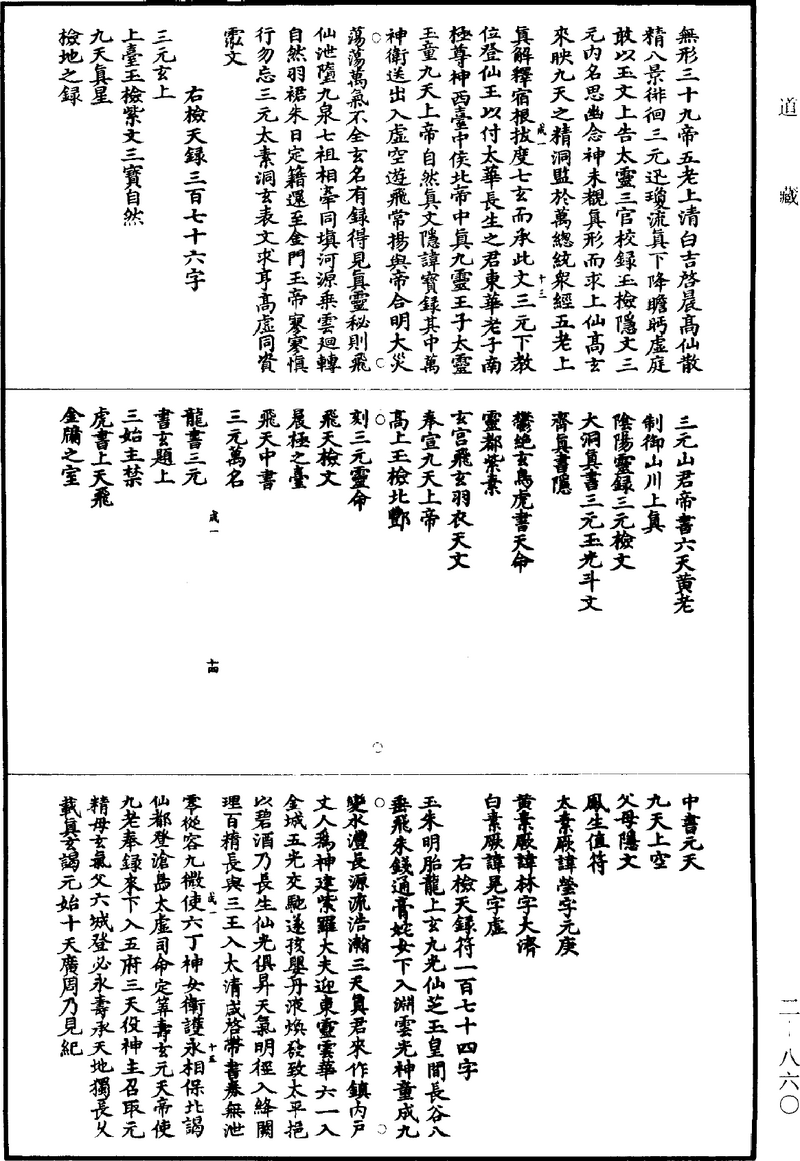 道藏
無形三十九帝五老上清白吉啓晨髙仙散
精八景徘徊三元迅瓊流真下降瞻眄虚庭
敢以玉文上告太靈三官校録玉檢隱文三
元内名思幽念神未覩真形而求上仙髙玄
來映九天之精洞監於萬總統衆經五老上
咸一
十三
真解釋宿根拔度七玄而承此文三元下教
位登仙王以付太華長生之君東華老子南
極尊神西臺中侯北帝中真九靈王子太靈
玉童九天上帝自然真文隱諱寶録其中萬
神衛送出入虚空遊飛常揚與帝合明大災
蕩蕩萬氣不全玄名有録得見真靈秘則飛
仙泄墮九泉七祖相牽同填河源乗雲廻轉
自然羽裙朱日定籍還至金門玉帝寥寥慎
行勿忘三元太素洞玄表文求亨髙虚同資
霐文
右檢天録三百七十六字
三元玄上
上臺玉檢紫文三寶自然
九天真星
檢地之録
三元山君帝書六天黄老
制御山川上真
陰陽靈録三元檢文
大洞真書三元玉光斗文
齊真書隱
鬱絶玄鳥虎書天命
靈都紫素
玄宫飛玄羽衣天文
奉宣九天上帝
髙上玉檢北酆
刻三元靈命
飛天檢文
晨極之臺
飛天中書
三元萬名
咸一
十四
龍書三元
書玄題上
三始主禁
虎書上天飛
金牖之室
中書元天
九天上空
父母隱文
鳳生值符
太素厥諱瑩字元庚
黄素厥諱林字大濟
白素厥諱晃字虚
右檢天録符一百七十四字
玉朱明胎龍上玄九光仙芝玉皇間長谷八
垂飛朱錢通膏姹女下入淵雲光神童成九
變水灃長源流浩瀚三天真君來作鎮内戸
丈人為神建紫羅大夫迎東靈雲華六一入
金城五光交馳遂孩嬰丹液煥發致太平挹
以碧酒乃長生仙光俱昇天氣明徑入絳闕
理百精長與三王入太清咸啓帶書券無泄
咸一
十五
零從容九微使六丁神女衛護永相保北謁
仙都登滄島太虚司命定筭壽玄元天帝使
九老奉録來下入五府三天役神主召取元
精母玄氣父六城登必永壽承天地獨長久
載真玄謁元始十天廣周乃見紀
二-八六〇